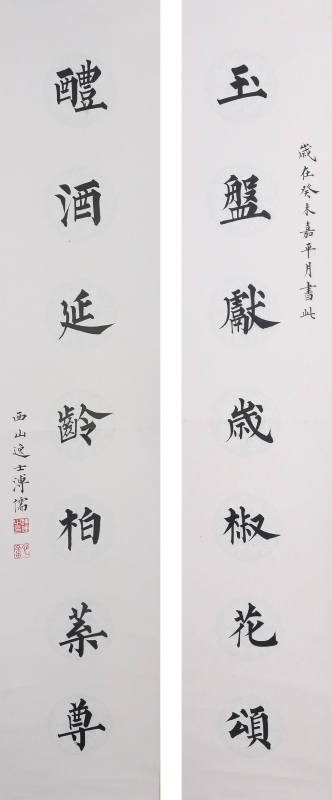 歲在癸未嘉平月書此
玉盤獻歲椒花頌
醴酒延齡柏葉尊
西山逸士溥儒